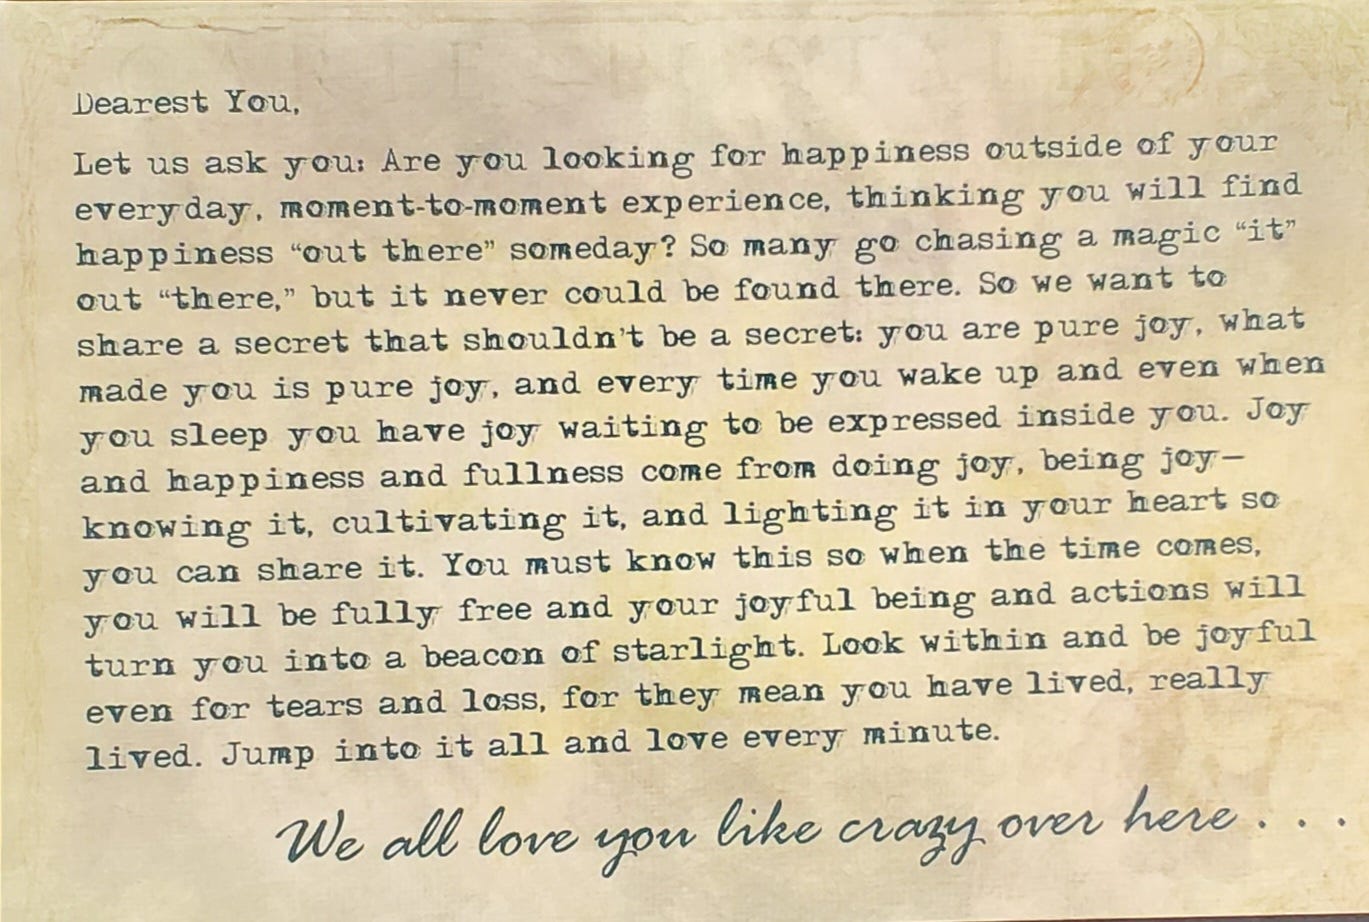 Dearest You,
Let us ask you: Are you looking for happiness outside of your
everyday, moment-to-moment experience, thinking you will find
happiness “out there” someday? So many go chasing a magic “it”
out “there,” but it never could be found there. So we want to
share a secret that shouldn’t be a secret: you are pure joy, what
made you is pure joy, and every time you wake up and even when
you sleep you have joy waiting to be expressed inside you. Joy
and happiness and fullness come from doing joy, being joy—
knowing it, cultivating it, and lighting it in your heart so
you can share it. You must know this so when the time comes,
you will be fully free and your joyful being and actions will
turn you into a beacon of starlight. Look within and be joyful
even for tears and loss, for they mean you have lived, really
lived. Jump into it all and love every minute.
We all love you like crazy over here . . .